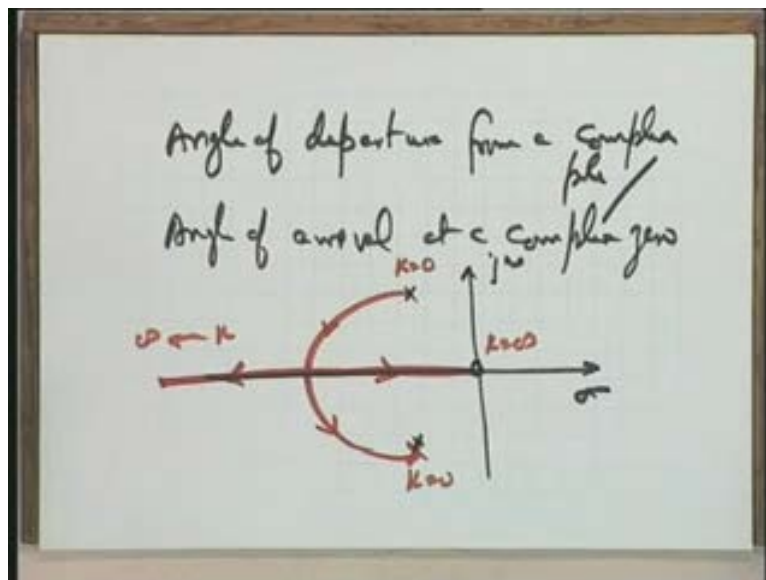 Angle of departure from a complex
pole
Angle of arrival at a complex zero
K=0
jω
∞ ← K
K=∞
σ
K=0